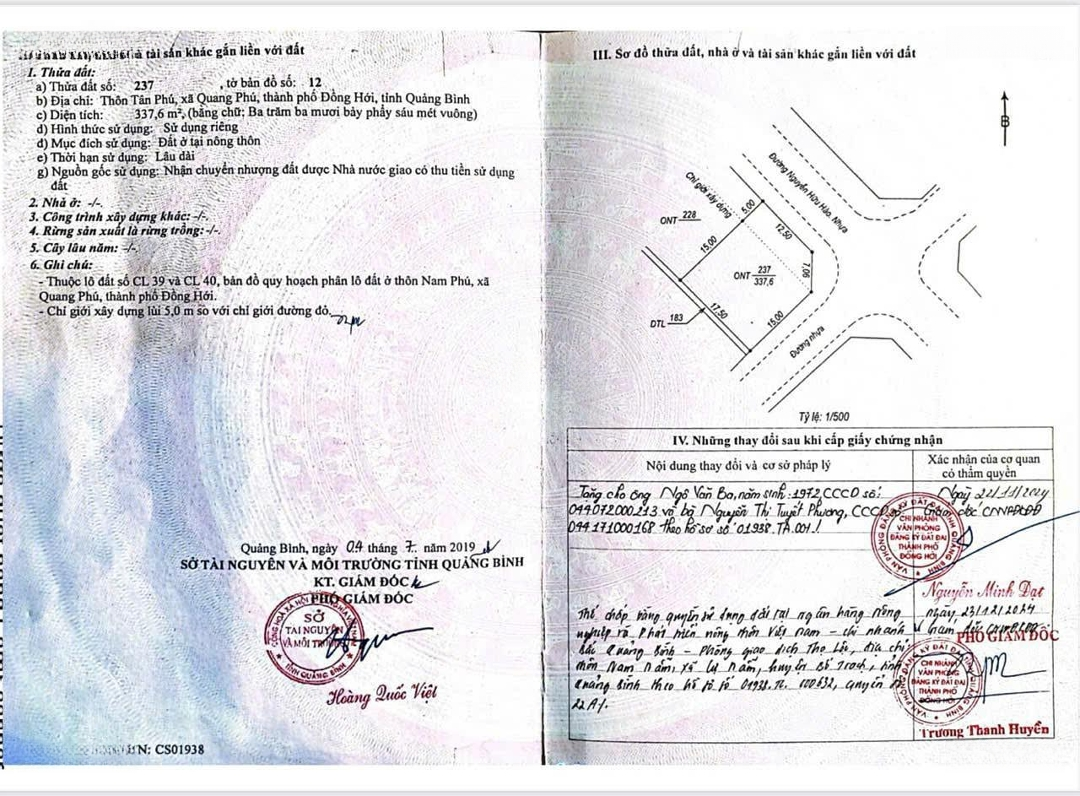 tài sản khác gắn liền với đất
1. Thửa đất:
a) Thửa đất số: 237 , tờ bản đồ số: 12
b) Địa chỉ: Thôn Tân Phú, xã Quang Phú, thành phố Đồng Hới, tỉnh Quảng Bình
c) Diện tích: 337,6 m², (bằng chữ: Ba trăm ba mươi bảy phẩy sáu mét vuông)
d) Hình thức sử dụng: Sử dụng riêng
đ) Mục đích sử dụng: Đất ở tại nông thôn
e) Thời hạn sử dụng: Lâu dài
g) Nguồn gốc sử dụng: Nhận chuyển nhượng đất được Nhà nước giao có thu tiền sử dụng
đất
2. Nhà ở: -/-.
3. Công trình xây dựng khác: -/-.
4. Rừng sản xuất là rừng trồng: -/-.
5. Cây lâu năm: -/-.
6. Ghi chú:
- Thuộc lô đất số CL 39 và CL 40, bản đồ quy hoạch phân lô đất ở thôn Nam Phú, xã
Quang Phú, thành phố Đồng Hới.
- Chỉ giới xây dựng lùi 5,0 m so với chỉ giới đường đỏ.
Quảng Bình, ngày 04 tháng 7 năm 2019
SỞ TÀI NGUYÊN VÀ MÔI TRƯỜNG TỈNH QUẢNG BÌNH
KT. GIÁM ĐỐC
PHÓ GIÁM ĐỐC
SỞ
TÀI NGUYÊN
VÀ MÔI TRƯỜNG
TỈNH QUẢNG BÌNH
Hoàng Quốc Việt
N: CS01938
III. Sơ đồ thửa đất, nhà ở và tài sản khác gắn liền với đất
B
Đường Nguyễn Hữu Hào, Nhựa
Chỉ giới xây dựng
5,00
12,50
ONT 228
15,00
7,06
ONT 237
337,6
17,50
15,00
DTL 183
Đường nhựa
Tỷ lệ: 1/500
IV. Những thay đổi sau khi cấp giấy chứng nhận
Nội dung thay đổi và cơ sở pháp lý
Xác nhận của cơ quan
có thẩm quyền
Tặng cho ông Ngô Văn Ba, năm sinh: 1972, CCCD số:
044072000213 và bà Nguyễn Thị Tuyết Phương, CCCD số
044171000168 theo hồ sơ số 01938.TA.001.
Ngày 22/11/2024
Giám đốc CNVPĐKĐĐ
CHI NHÁNH
VĂN PHÒNG
ĐĂNG KÝ ĐẤT ĐAI
THÀNH PHỐ
ĐỒNG HỚI
Nguyễn Minh Đạt
Thế chấp bằng quyền sử dụng đất tại ngân hàng Nông
nghiệp và Phát triển nông thôn Việt Nam - chi nhánh
Bắc Quảng Bình - Phòng giao dịch Thọ Lộc, địa chỉ
thôn Nam Nẫm, xã Lý Nam, huyện Bố Trạch, tỉnh
Quảng Bình theo hồ sơ số 01938. quyển
22A1.
Ngày, 23/12/2024
PHÓ GIÁM ĐỐC
CHI NHÁNH
VĂN PHÒNG
ĐĂNG KÝ ĐẤT ĐAI
THÀNH PHỐ
ĐỒNG HỚI
Trương Thanh Huyền